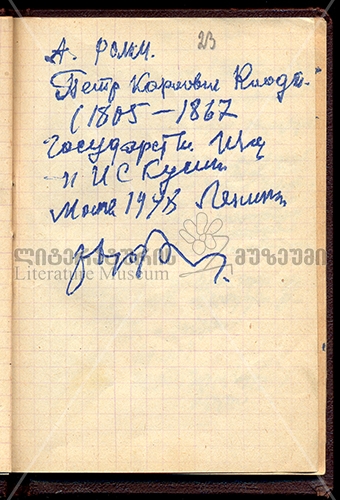 23
А. ромм.
Петр Карлович Клодт.
(1805 — 1867
Государств. Изд
— п ИСКусст.
Москва 1948 Ленинг.
ლიტერატურის მუზეუმი
Literature Museum